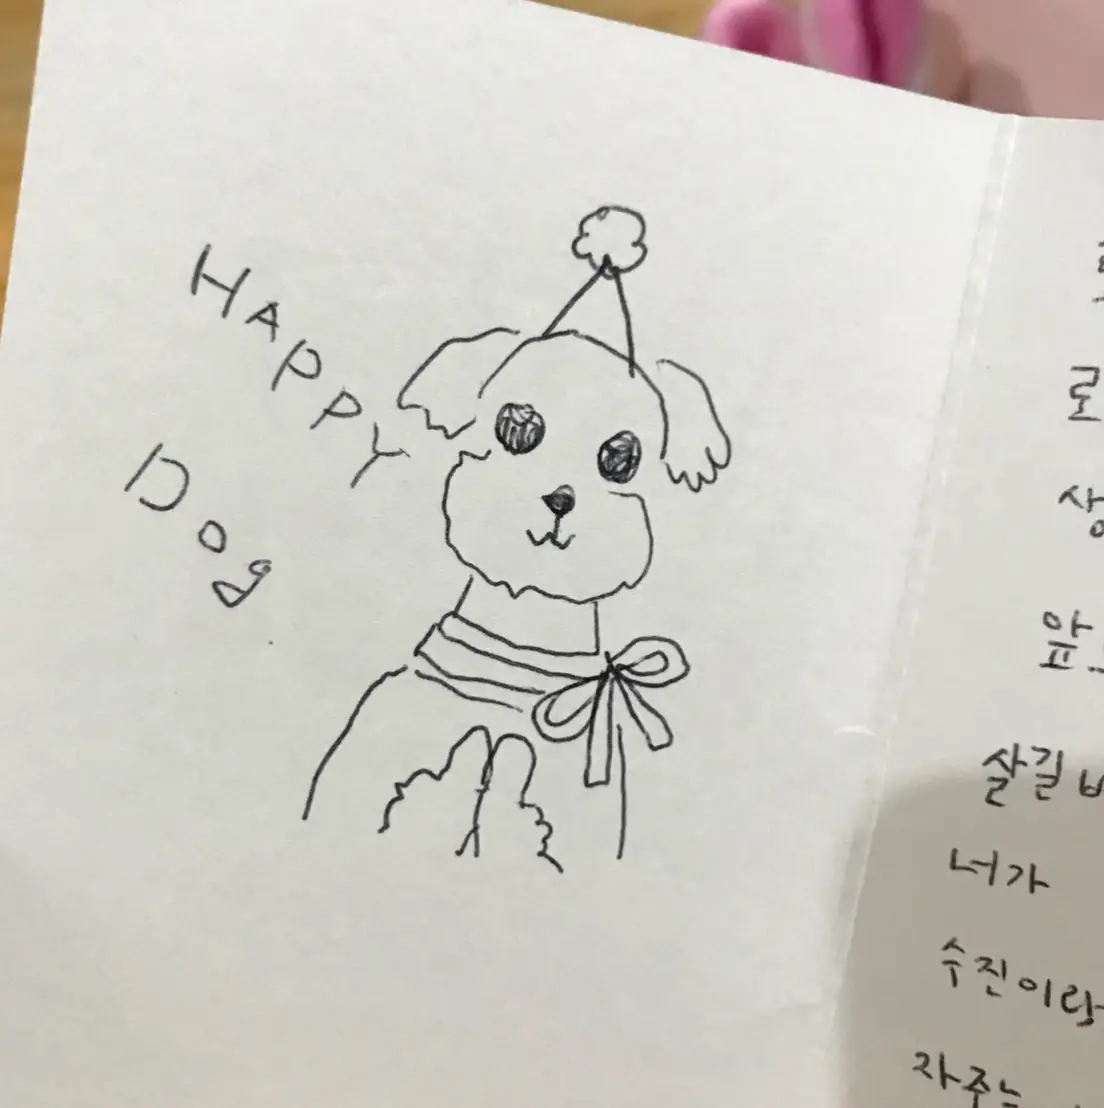 HAPPY
Dog
로
상
살길
너가
수진이랑
자주는